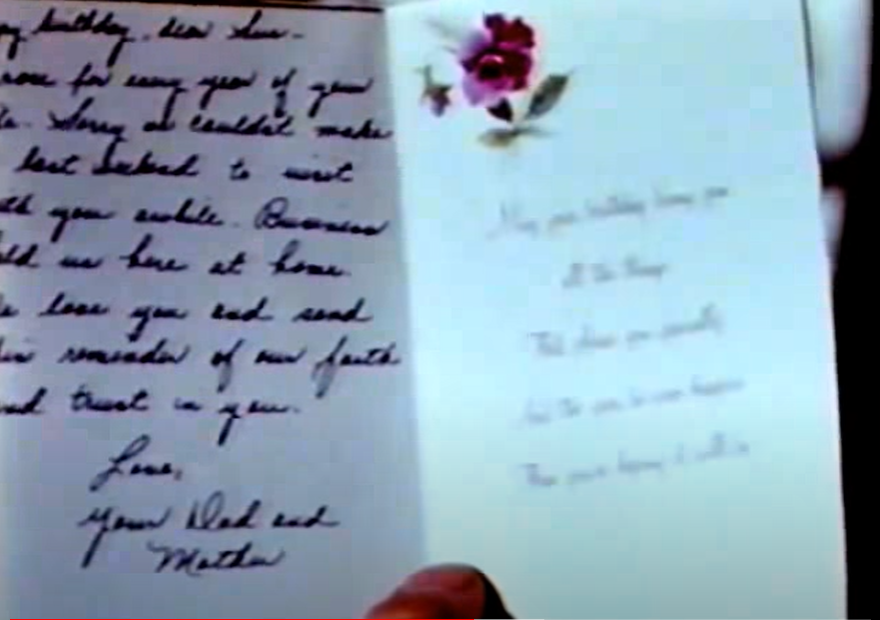 birthday, dear Sue -
rose for every year of your
Sorry we couldn't make
last weekend to visit
you awhile. Business
us here at home.
love you and send
reminder of our faith
and trust in you.
Love,
Your Dad and
Mother
May your birthday bring you
all the things
That please you specially
And the year be even happier
Than you're hoping it will be